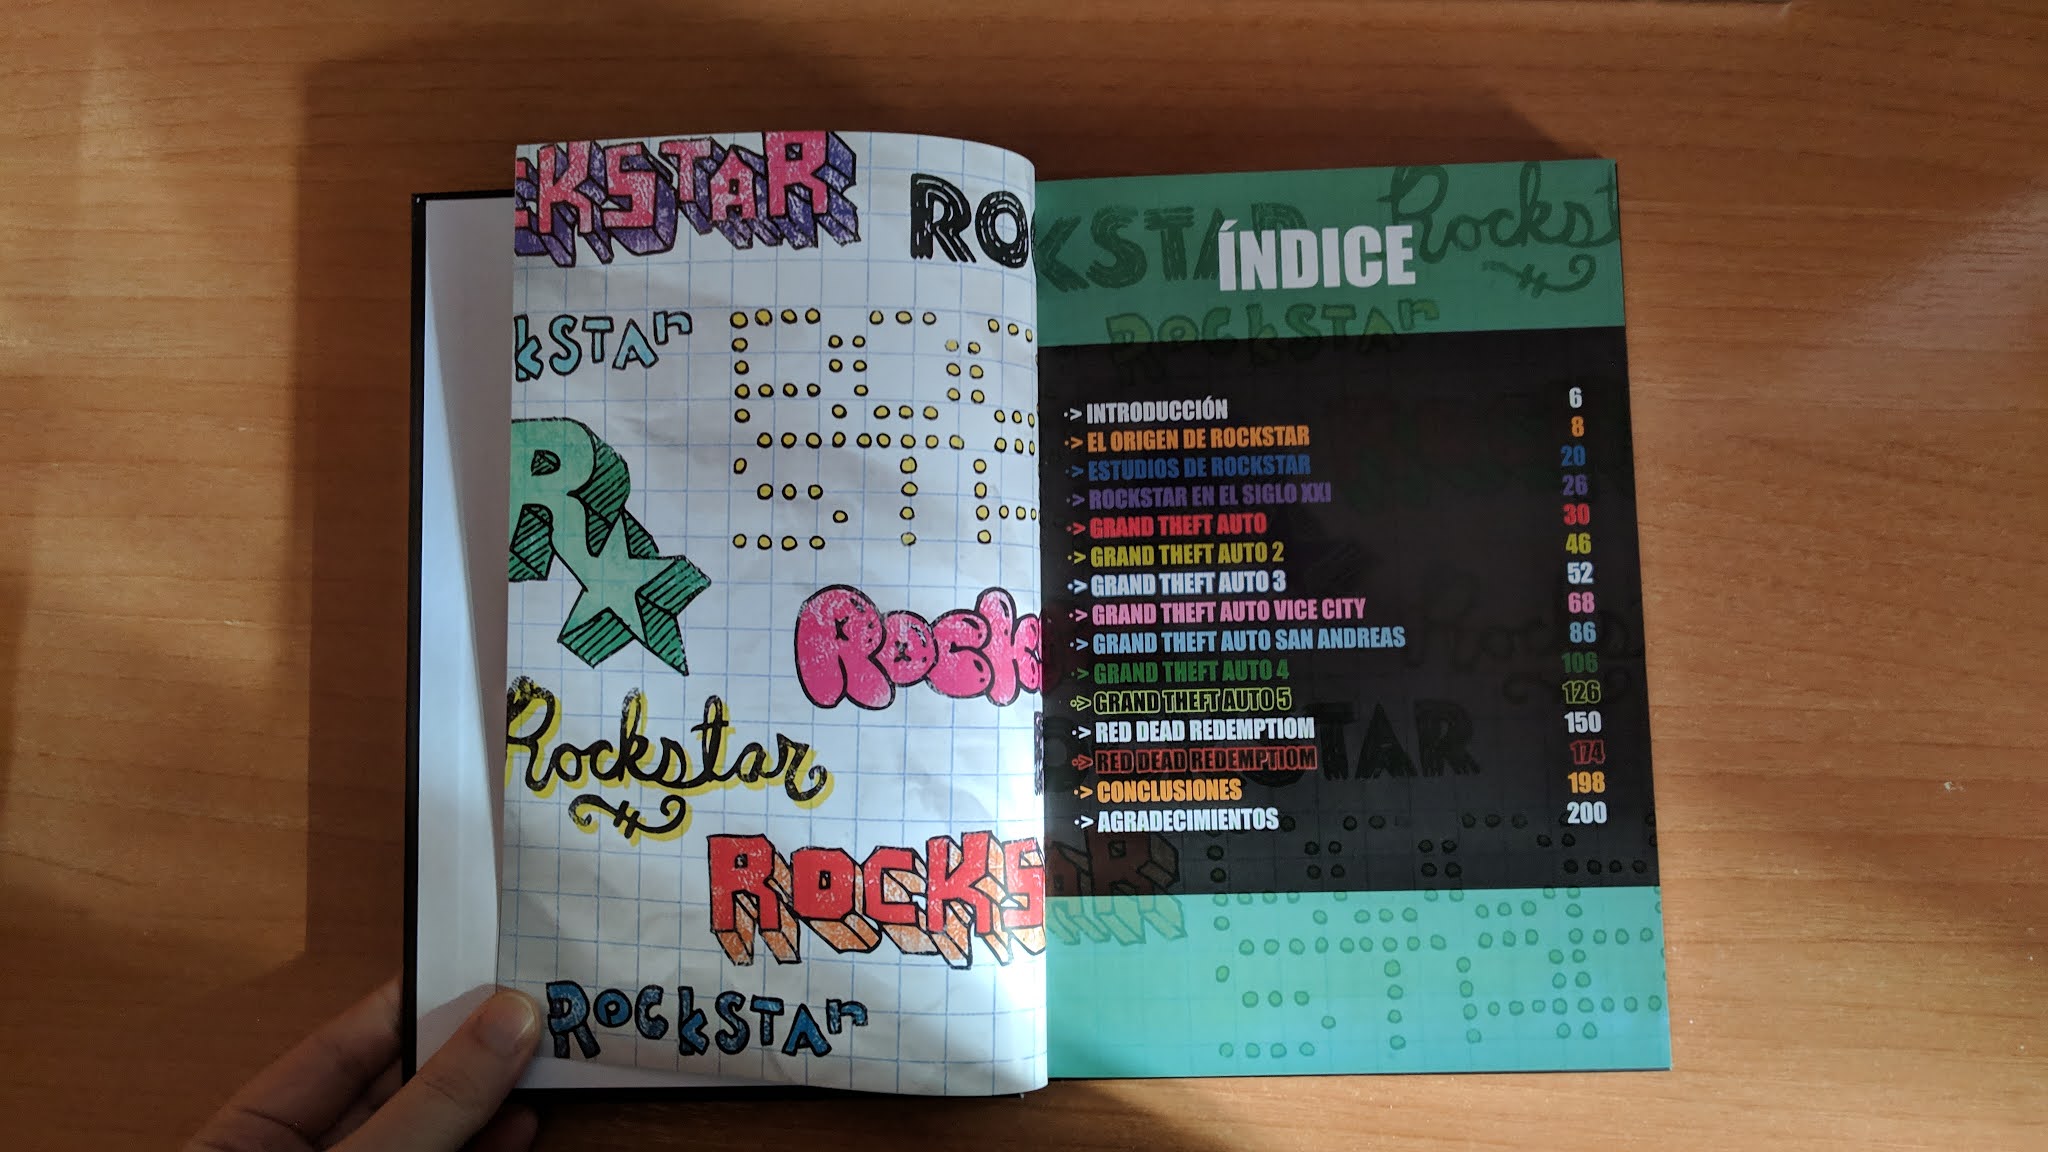 CKSTAR
RO
KSTAR
R
Rock
Rockstar
ROCKS
ROCKSTAR
KSTAR
Rockst
ÍNDICE
ROCKSTAR
·> INTRODUCCIÓN 6
·> EL ORIGEN DE ROCKSTAR 8
·> ESTUDIOS DE ROCKSTAR 20
·> ROCKSTAR EN EL SIGLO XXI 26
·> GRAND THEFT AUTO 30
·> GRAND THEFT AUTO 2 46
·> GRAND THEFT AUTO 3 52
·> GRAND THEFT AUTO VICE CITY 68
·> GRAND THEFT AUTO SAN ANDREAS 86
·> GRAND THEFT AUTO 4 106
·> GRAND THEFT AUTO 5 126
·> RED DEAD REDEMPTIOM 150
·> RED DEAD REDEMPTIOM 174
·> CONCLUSIONES 198
·> AGRADECIMIENTOS 200
AR